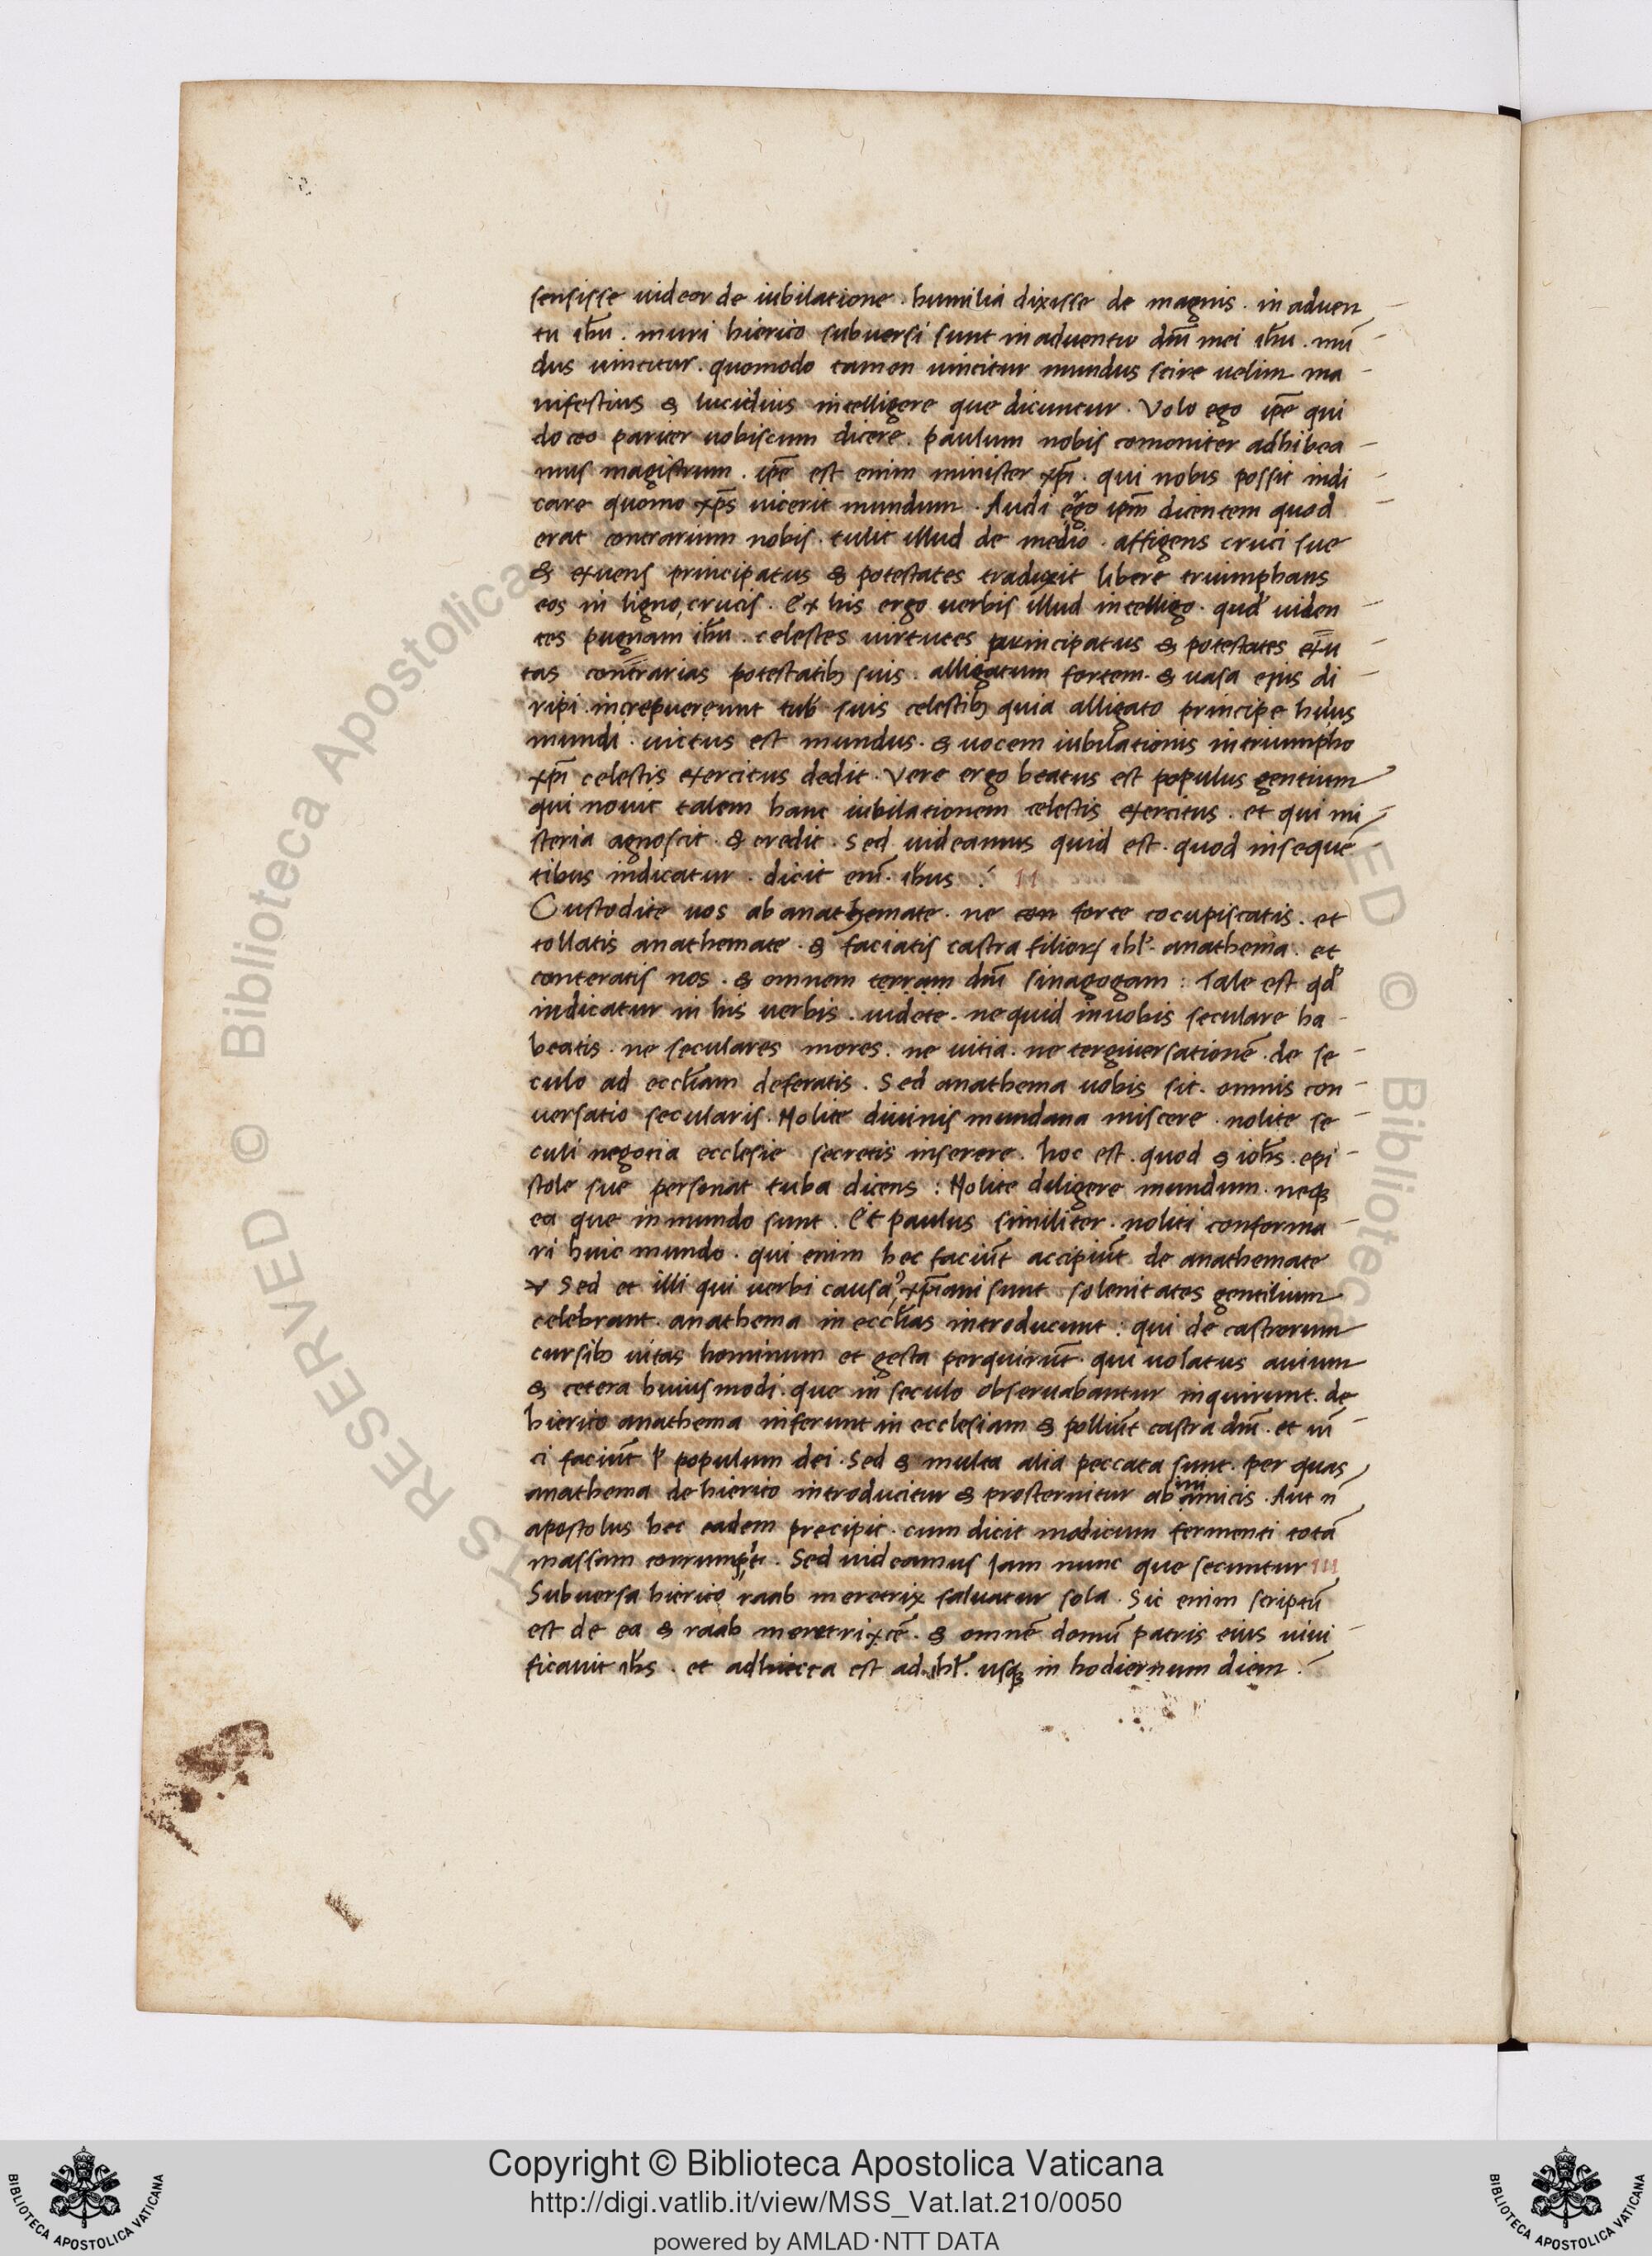 sensisse uideor de iubilatione . humilia dixisse de magnis . in aduen
tu ihu̅ . muri hierico subuersi sunt in aduentu dn̅i mei ihu̅ . mu̅
dus uincitur . quomodo tamen uincitur mundus scire uelim ma
nifestius & lucidius intelligere que dicuntur . Volo ego ip̅e qui
doceo pariter uobiscum dicere . paulum nobis comoniter adhibea
mus magistrum . ip̅e est enim minister xp̅i . qui nobis possit indi
care quomo xp̅s uicerit mundum . Audi ergo ip̅m dicentem quod
erat contrarium nobis . tulit illud de medio . affigens cruci sue
& exuens principatus & potestates traduxit libere triumphans
eos in ligno crucis . Ex his ergo uerbis illud intelligo . quod uiden
tes pugnam ihu̅ . celestes uirtutes principatus & potestates exu
tas contrarias potestatib; suis . alligatum fortem . & uasa eius di
ripi . increpuererunt tub suis celestib; quia alligato principe huius
mundi . uictus est mundus . & uocem iubilationis in triumpho
xp̅i celestis exercitus dedit . Vere ergo beatus est populus gentium
qui nouit talem hanc iubilationem celestis exercitus . et qui mi
steria agnoscit . & credit . Sed uideamus quid est . quod in seque̅
tibus indicatur . dicit eni̅ . ihus : II
Custodite uos ab anathemate . ne con forte cocupiscatis . et
tollatis anathemate . & faciatis castra filiorʒ ihl̅ . anathema . et
conteratis nos . & omnem terram dn̅i sinagogam : Tale est qd̅
indicatur in his uerbis . uidete . ne quid in uobis seculare ha
beatis . ne seculares mores . ne uitia . ne terguiersatione̅ . de se
culo ad eccl̅iam deferatis . Sed anathema uobis sit . omnis con
uersatio secularis . Nolite diuinis mundana miscere . nolite se
culi negotia ecclesie secretis inserere . hoc est . quod & ioh̅s . epi
stole sue personat tuba dicens : Nolite diligere mundum . neqʒ
ea que in mundo sunt . Et paulus similiter . noliti conforma
ri huic mundo . qui enim hec faciu̅t accipiu̅t de anathemate
Sed et illi qui uerbi causa xp̅iani sunt solenitates gentilium
celebrant . anathema in eccl̅ias introducunt : qui de castrorum
cursib; uitas hominum et gesta perquiru̅t . qui uolatus auium
& cetera huiusmodi . que in seculo obseruabantur inquirunt . de
hierico anathema inferunt in ecclesiam & polliu̅t castra dn̅i . et ui̅
ci faciu̅t populum dei . Sed & multa alia peccata sunt . per quas
anathema de hierico introducitur & prosternitur ab inimicis . Aut n̅
apostolus hec eadem precipit . cum dicit modicum fermenti tota̅
massam corrumpit . Sed uideamus Iam nunc que secuntur III
Subuersa hierico raab meretrix saluatur sola . Sic enim scriptu̅
est de ea & raab meretrixce̅ . & omne̅ domu̅ patris eius uiui
ficauit ih̅s . et adhiecta est ad . ihl̅ . usqʒ in hodiernum diem :
Copyright © Biblioteca Apostolica Vaticana
http://digi.vatlib.it/view/MSS_Vat.lat.210/0050
powered by AMLAD·NTT DATA
BIBLIOTECA APOSTOLICA VATICANA
BIBLIOTECA APOSTOLICA VATICANA